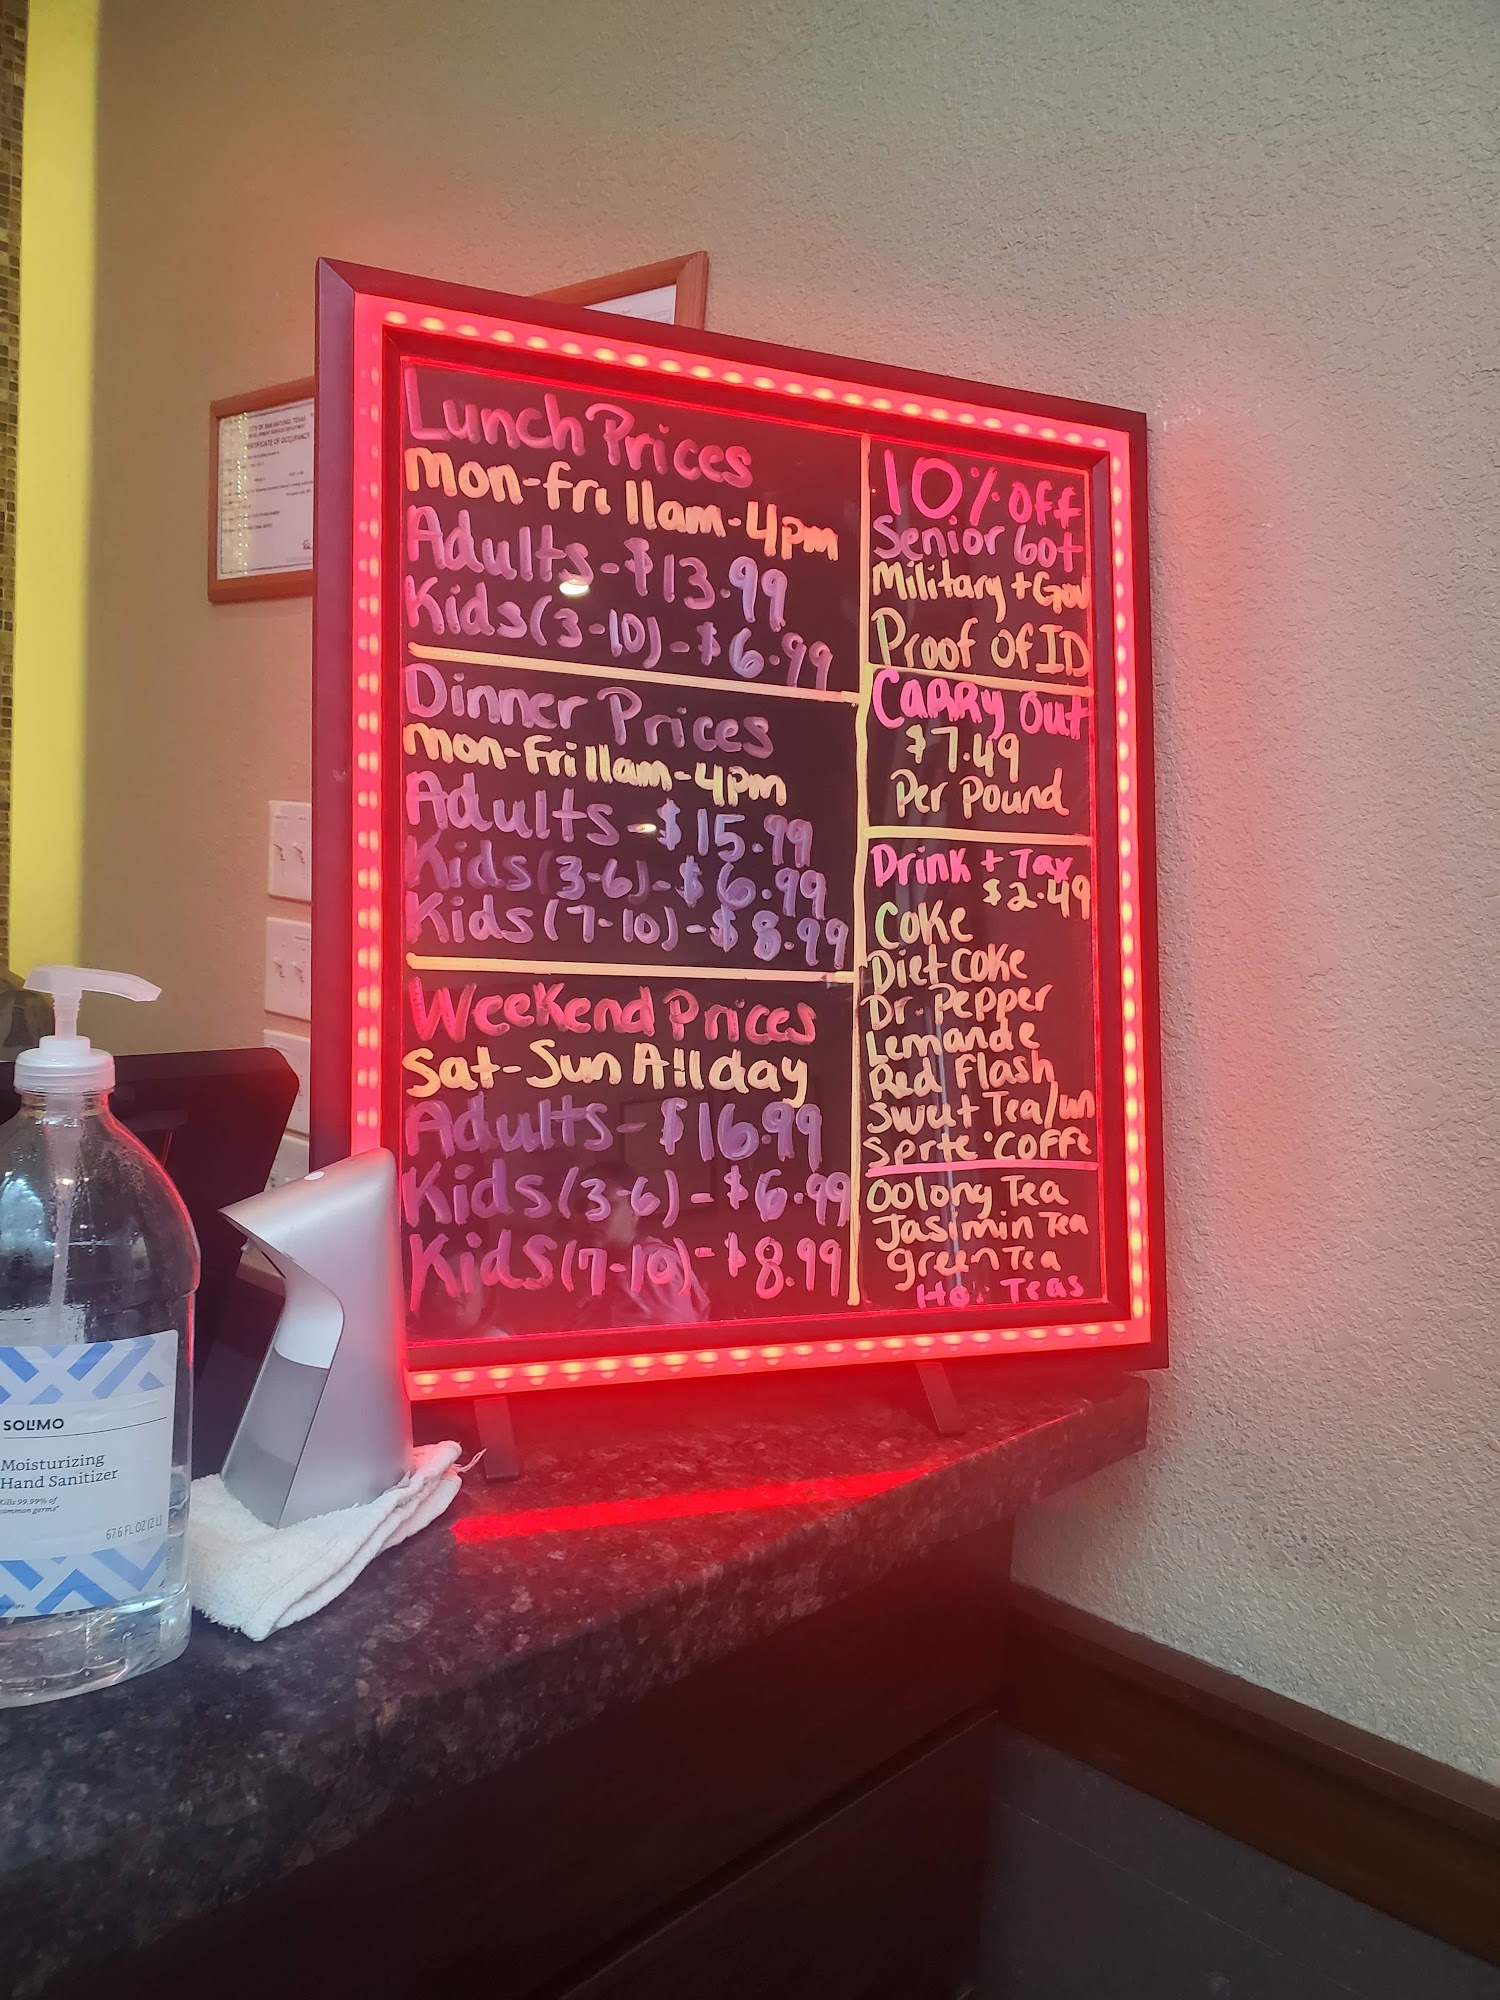 Lunch Prices
Mon-Fri 11am-4pm
Adults-$13.99
Kids(3-10)-$6.99
Dinner Prices
Mon-Fri 11am-4pm
Adults-$15.99
Kids(3-6)-$6.99
Kids(7-10)-$8.99
Weekend Prices
Sat-Sun All day
Adults-$16.99
Kids(3-6)-$6.99
Kids(7-10)-$8.99
10% off
Senior 60+
Military + Gov
Proof of ID
CARRy Out
$7.49
Per Pound
Drink + Tax
$2.49
Coke
Diet Coke
Dr. Pepper
Lemande
Red Flash
Sweet Tea/un
Sprte • Coffe
Oolong Tea
Jasimin Tea
green Tea
Hot Teas
CITY OF SAN ANTONIO, TEXAS
CERTIFICATE OF OCCUPANCY
SOLIMO
Moisturizing
Hand Sanitizer
Kills 99.99% of
common germs*
67.6 FL OZ (2 L)